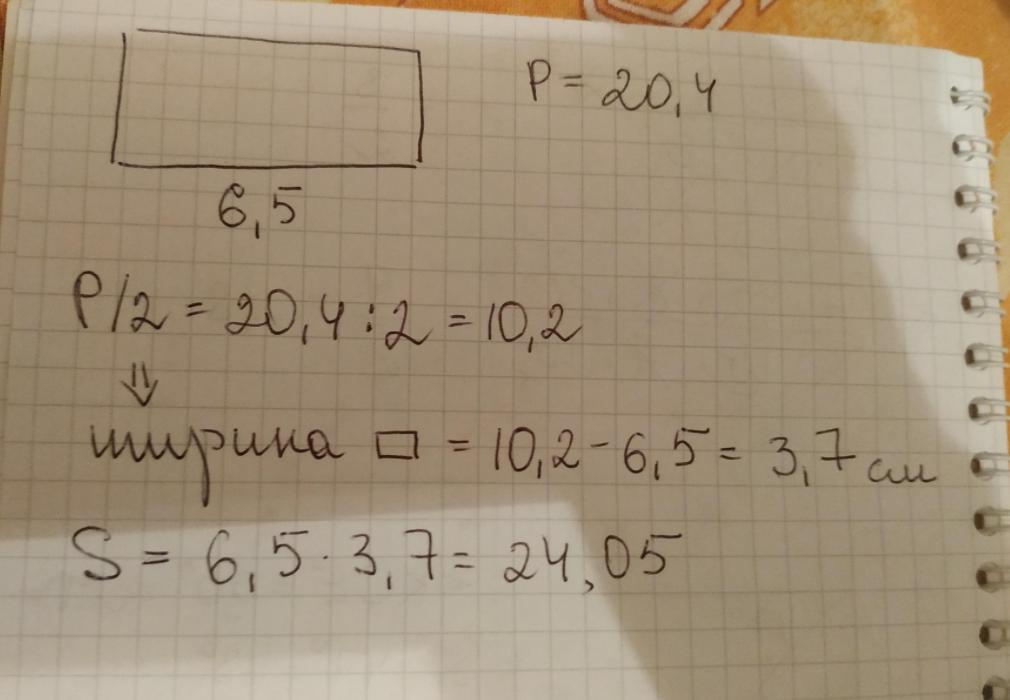 P = 20,4
6,5
P/2 = 20,4 : 2 = 10,2
⇓
ширина ▭ = 10,2 - 6,5 = 3,7 см
S = 6,5 · 3,7 = 24,05